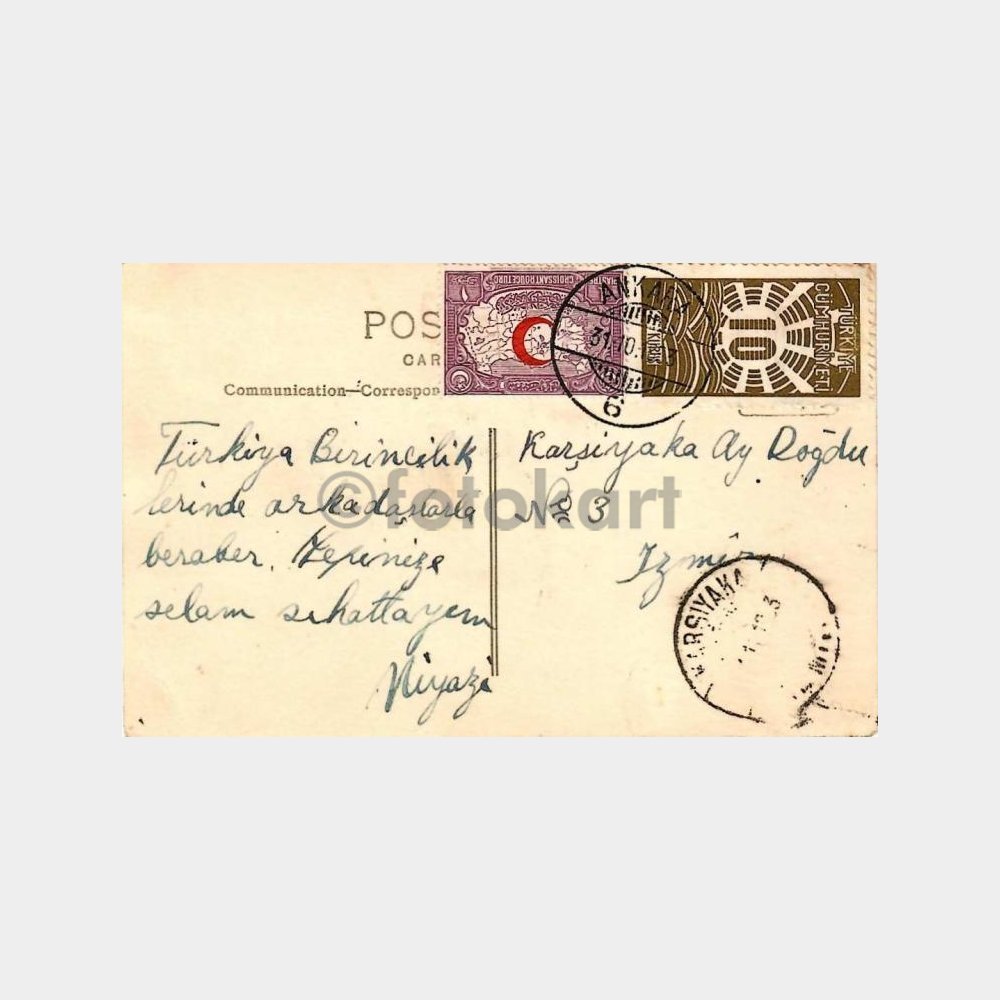 POS
CAR
Communication—Correspon
PIASTRE
CROISSANT ROUGE TURC
ANKARA
31.10.
6
TÜRKİYE
CÜMHURİYETİ
10
Türkiya Birincilik
lerinde arkadaşlarla
beraber. Hepinize
selam sıhattayım
Niyazi
Karşiyaka Ay Doğdu
No 3
Izmir
KARŞIYAKA
©fotokart